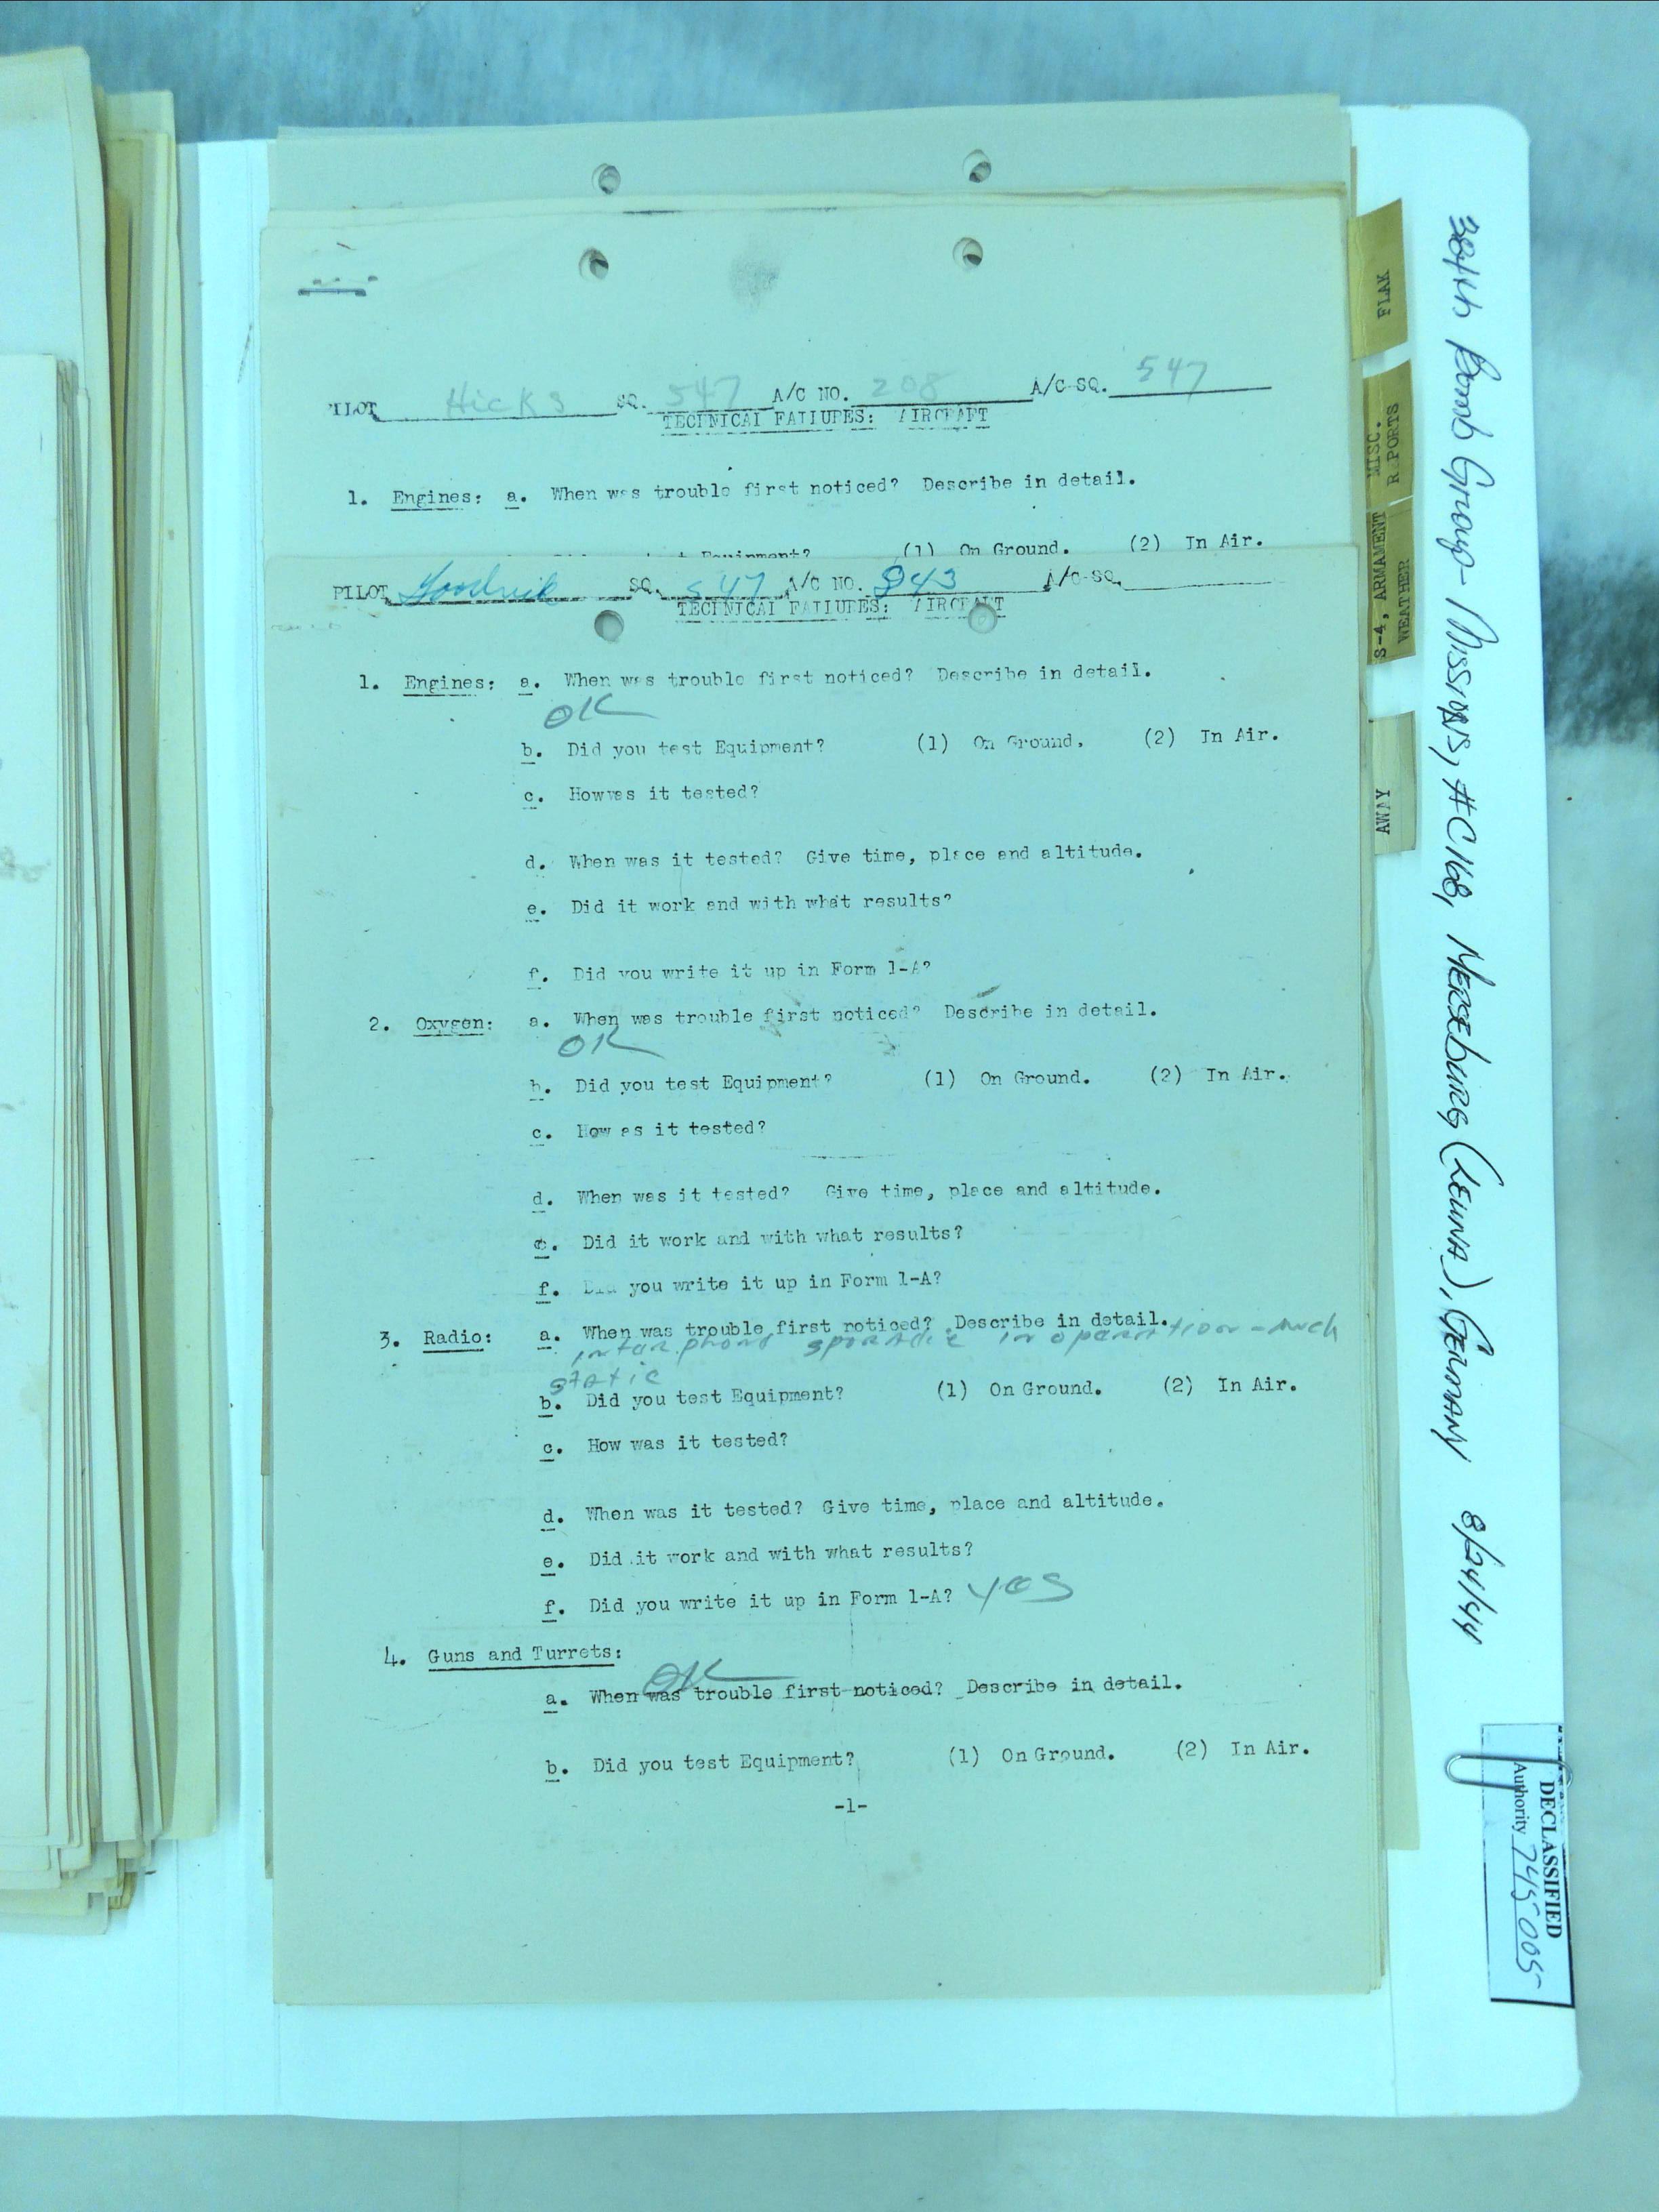 PILOT Hicks SQ. 547 A/C NO. 208 A/C SQ. 547
TECHNICAL FAILURES: AIRCRAFT
1. Engines: a. When was trouble first noticed? Describe in detail.
Equipment? (1) On Ground. (2) In Air.
PILOT SQ. 547 A/C NO. 943 A/C SQ.
TECHNICAL FAILURES: AIRCRAFT
1. Engines: a. When was trouble first noticed? Describe in detail.
OK
b. Did you test Equipment? (1) On Ground. (2) In Air.
c. How was it tested?
d. When was it tested? Give time, place and altitude.
e. Did it work and with what results?
f. Did you write it up in Form 1-A?
2. Oxygen: a. When was trouble first noticed? Describe in detail.
OK
b. Did you test Equipment? (1) On Ground. (2) In Air.
c. How as it tested?
d. When was it tested? Give time, place and altitude.
e. Did it work and with what results?
f. Did you write it up in Form 1-A?
3. Radio: a. When was trouble first noticed? Describe in detail.
interphone sporadic in operation - much
static
b. Did you test Equipment? (1) On Ground. (2) In Air.
c. How was it tested?
d. When was it tested? Give time, place and altitude.
e. Did it work and with what results?
f. Did you write it up in Form 1-A? yes
4. Guns and Turrets:
OK
a. When was trouble first noticed? Describe in detail.
b. Did you test Equipment? (1) On Ground. (2) In Air.
-1-
FLAK
MISC.
REPORTS
S-4, ARMAMENT
WEATHER
AWAY
384th Bomb Group - Missions, #C168, Merseburg (Leuna), Germany 8/24/44
DECLASSIFIED
Authority 745005